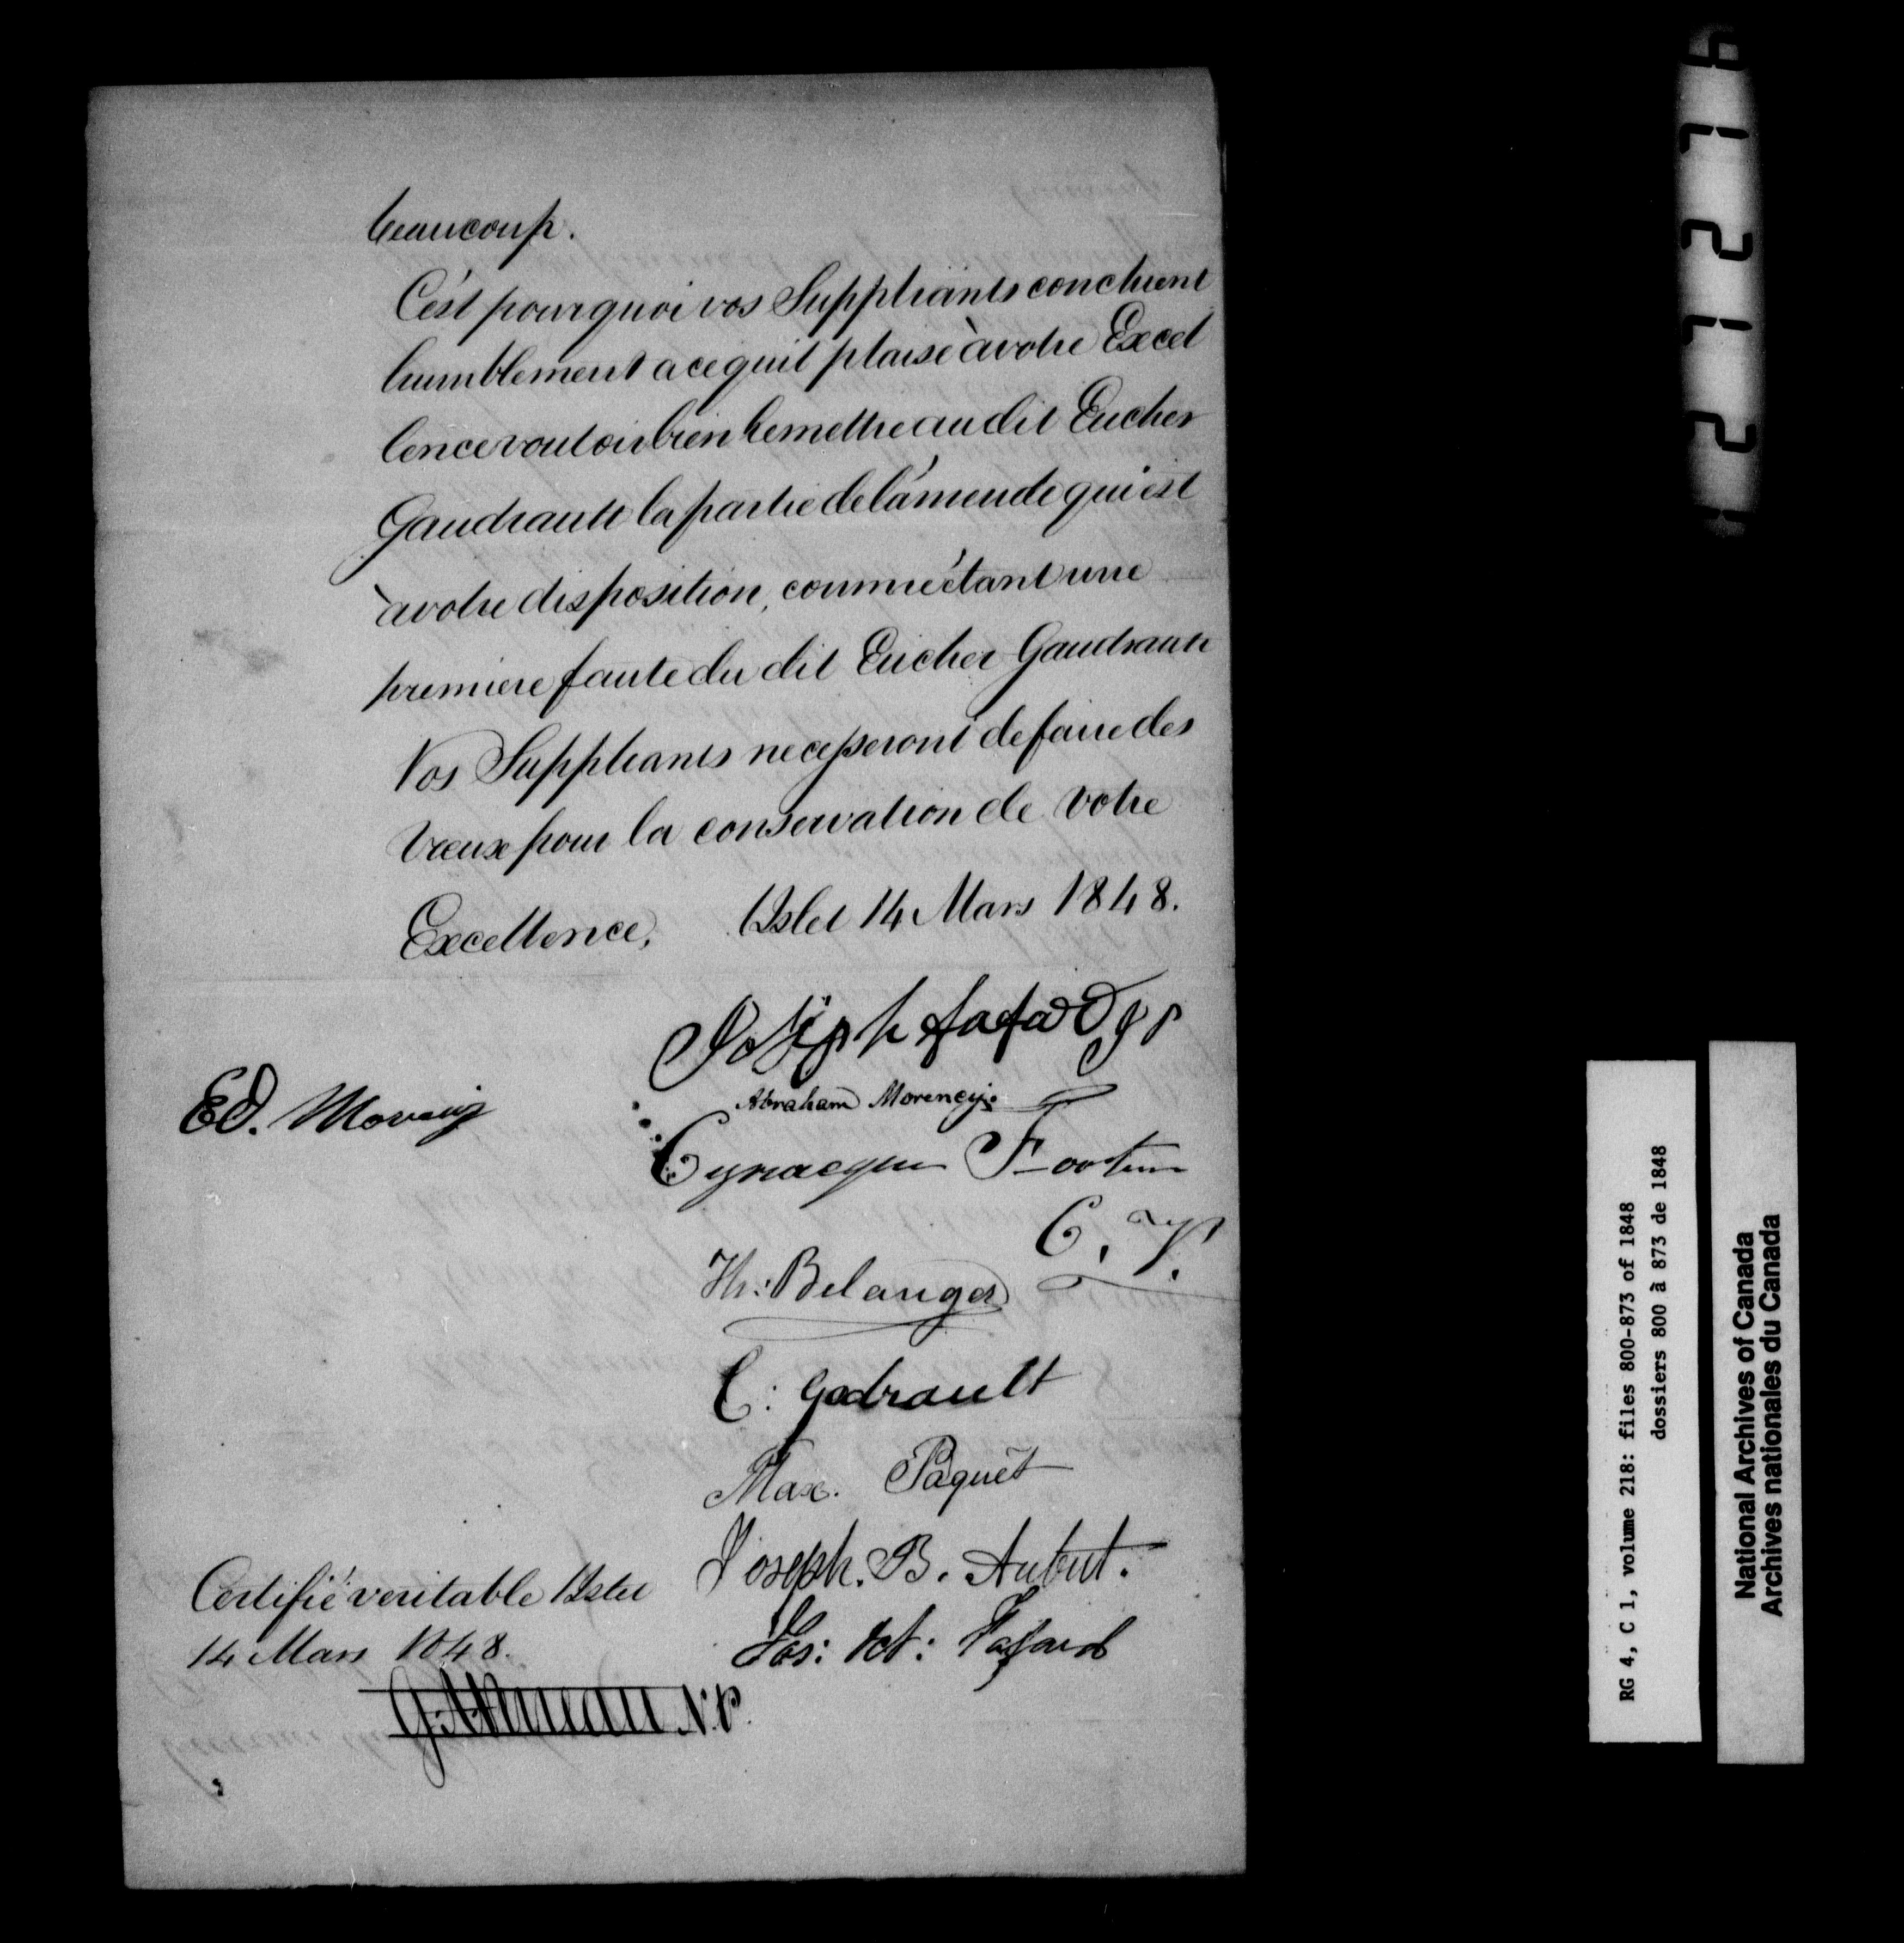 beaucoup.
C'est pourquoi vos Suppliants concluent
humblement a ce qu'il plaise à votre Excel
lence vouloir bien Remettre au dit Eucher
Gaudrault la partie de l'amende qui est
à votre disposition, comme étant une
premiere faute du dit Eucher Gaudrault
Vos Suppliants ne cesseront de faire des
Vœux pour la conservation de votre
Excellence, L'Islet 14 Mars 1848.
Joseph fafard
Ed.
Abraham Morency
Fortin
C. P.
Th: Belanger
C: Godrault
Max. Paquet
Joseph. B. Aubut.
Jos: Fafard
Certifié veritable L'Islet
14 Mars 1848.
N.P.
RG 4, C 1, volume 218: files 800-873 of 1848
dossiers 800 à 873 de 1848
National Archives of Canada
Archives nationales du Canada